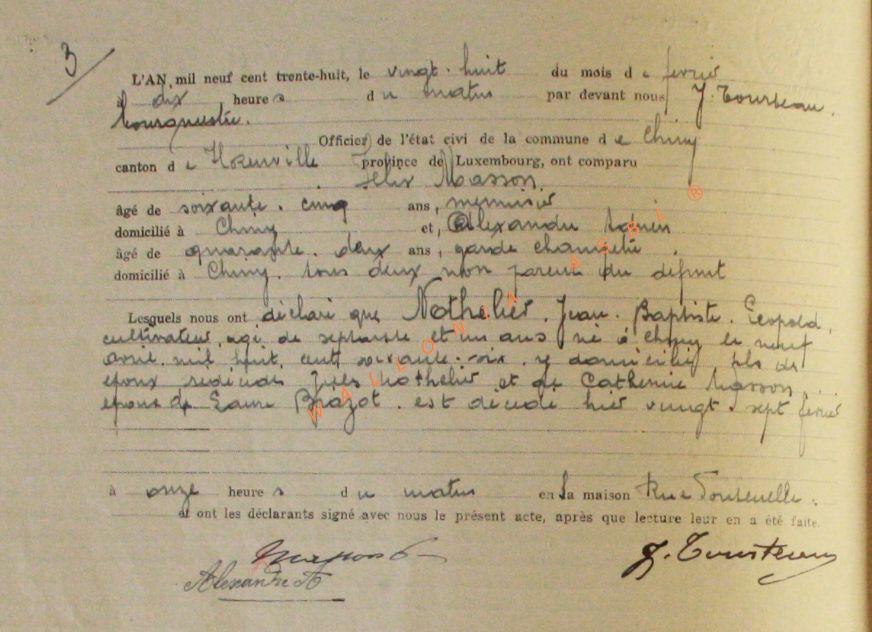 3
L'AN mil neuf cent trente-huit, le vingt-huit du mois de février
à dix heures du matin par devant nous J. Tourteau,
bourgmestre.
Officier de l'état civi de la commune de Chiny
canton de province de Luxembourg, ont comparu
Félix Masson
âgé de soixante-cinq ans, menuisier
domicilié à Chiny et, Alexandre
âgé de quarante-deux ans, garde champêtre
domicilié à Chiny, tous deux non parent du défunt
Lesquels nous ont déclaré que Nothelier, Jean-Baptiste-Léopold,
cultivateur, âgé de septante et un ans né à Chiny le neuf
avril mil huit cent soixante-six, y domicilié, fils des
époux Jules Nothelier et de Catherine Masson,
époux de Brazot, est décédé hier vingt-sept février
à onze heures du matin en sa maison Rue
et ont les déclarants signé avec nous le présent acte, après que lecture leur en a été faite.
Masson f
J. Tourteau
Alexandre A
WALLONIA ASBL ®